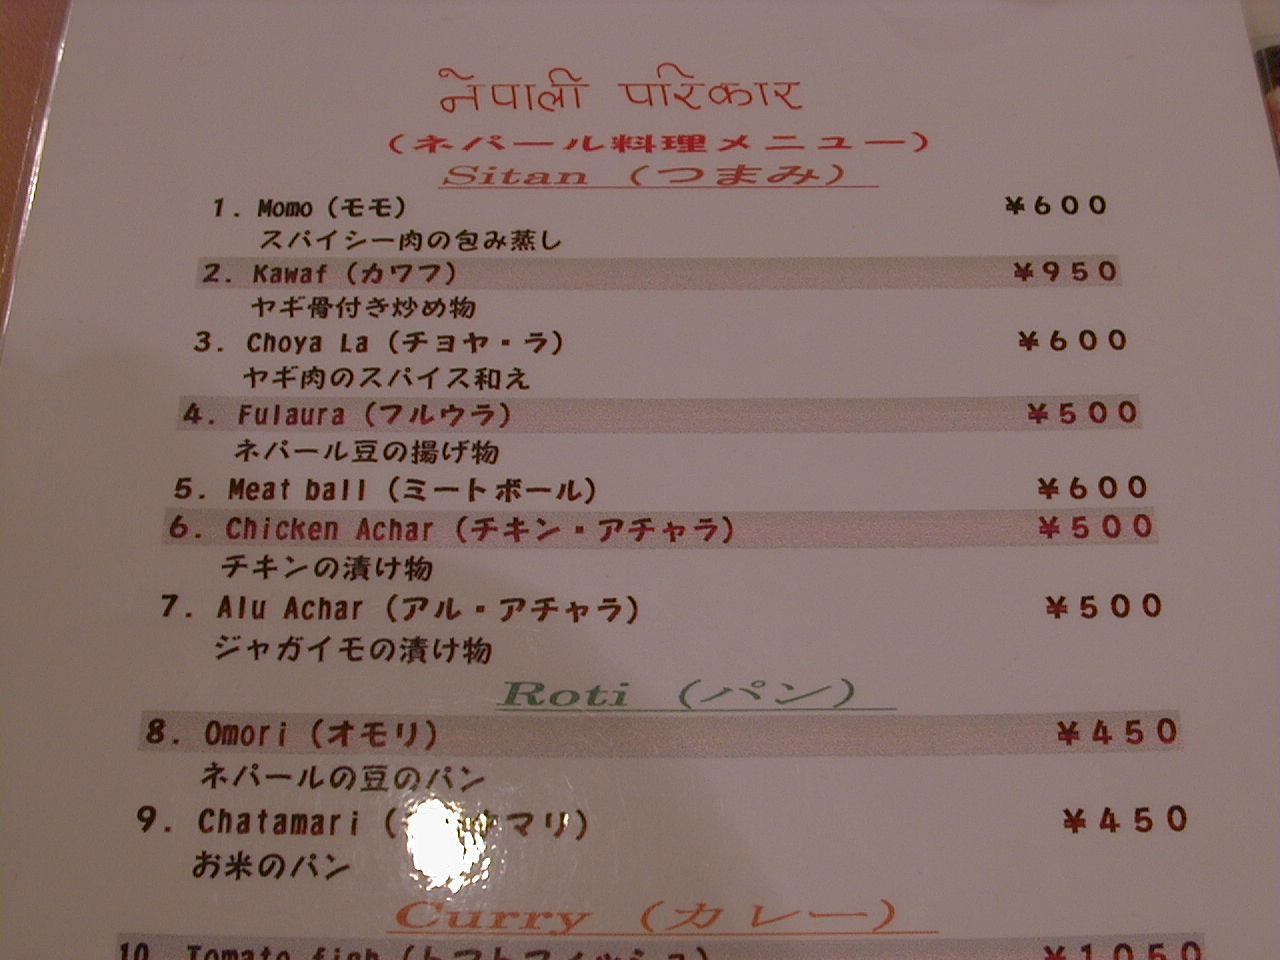 नेपाली परिकार
(ネパール料理メニュー)
Sitan (つまみ)
1. Momo (モモ) ¥600
スパイシー肉の包み蒸し
2. Kawaf (カワフ) ¥950
ヤギ骨付き炒め物
3. Choya La (チョヤ・ラ) ¥600
ヤギ肉のスパイス和え
4. Fulaura (フルウラ) ¥500
ネパール豆の揚げ物
5. Meat ball (ミートボール) ¥600
6. Chicken Achar (チキン・アチャラ) ¥500
チキンの漬け物
7. Alu Achar (アル・アチャラ) ¥500
ジャガイモの漬け物
Roti (パン)
8. Omori (オモリ) ¥450
ネパールの豆のパン
9. Chatamari ¥450
お米のパン
Curry (カレー)
10. Tomato fish (トマトフィッシュ) ¥1050